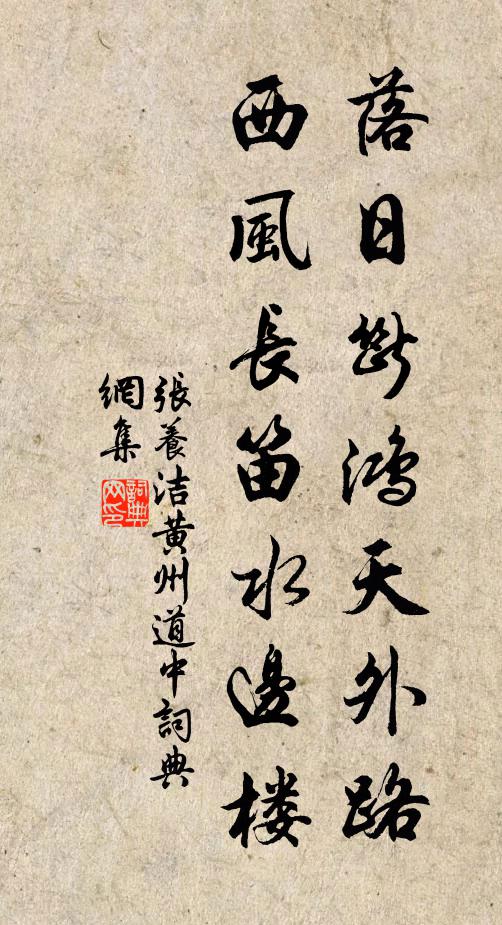 落日斷鴻天外路
西風長笛水邊楼
張養洁黃州道中詞典
網集
詞典网印